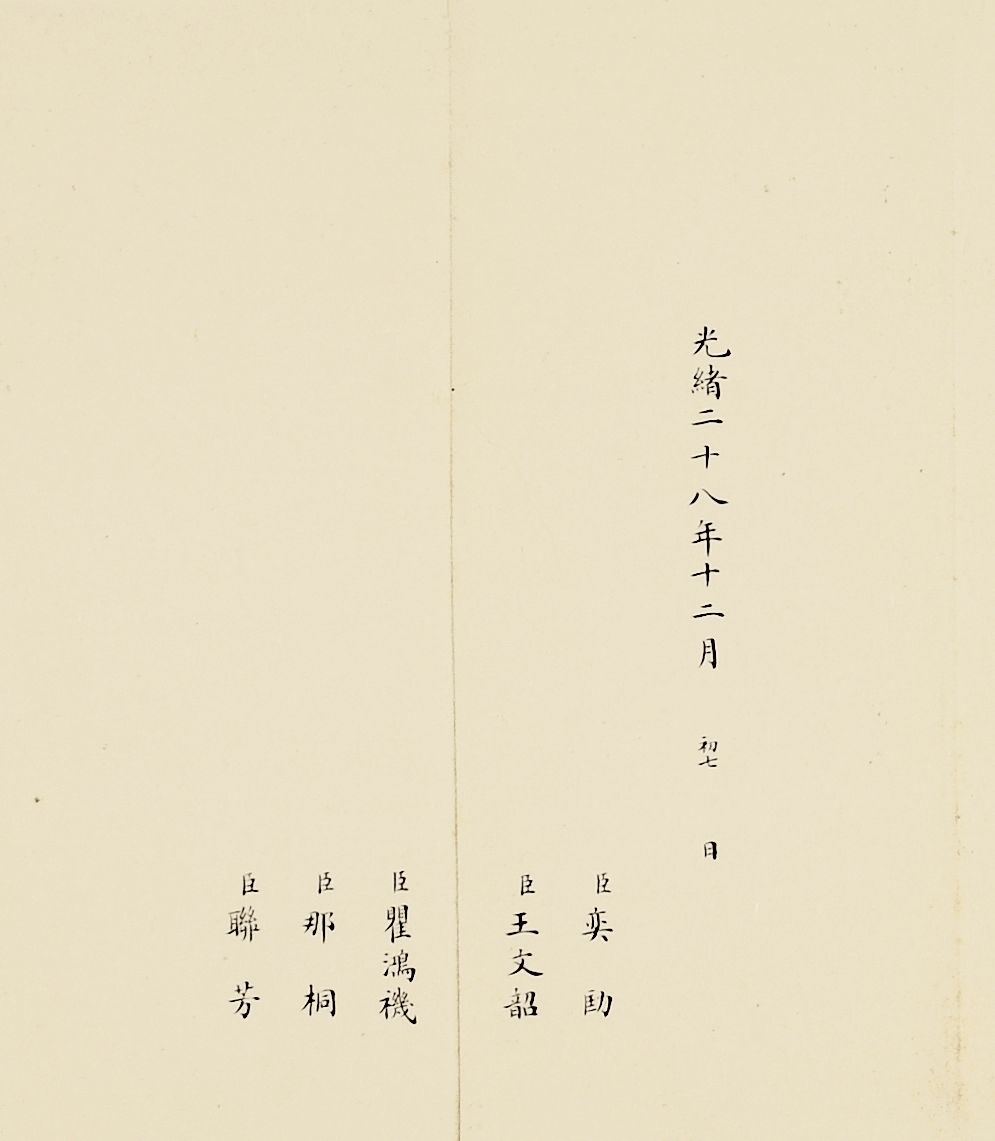 光緒二十八年十二月初七日
臣奕劻
臣王文韶
臣瞿鴻禨
臣那桐
臣聯芳